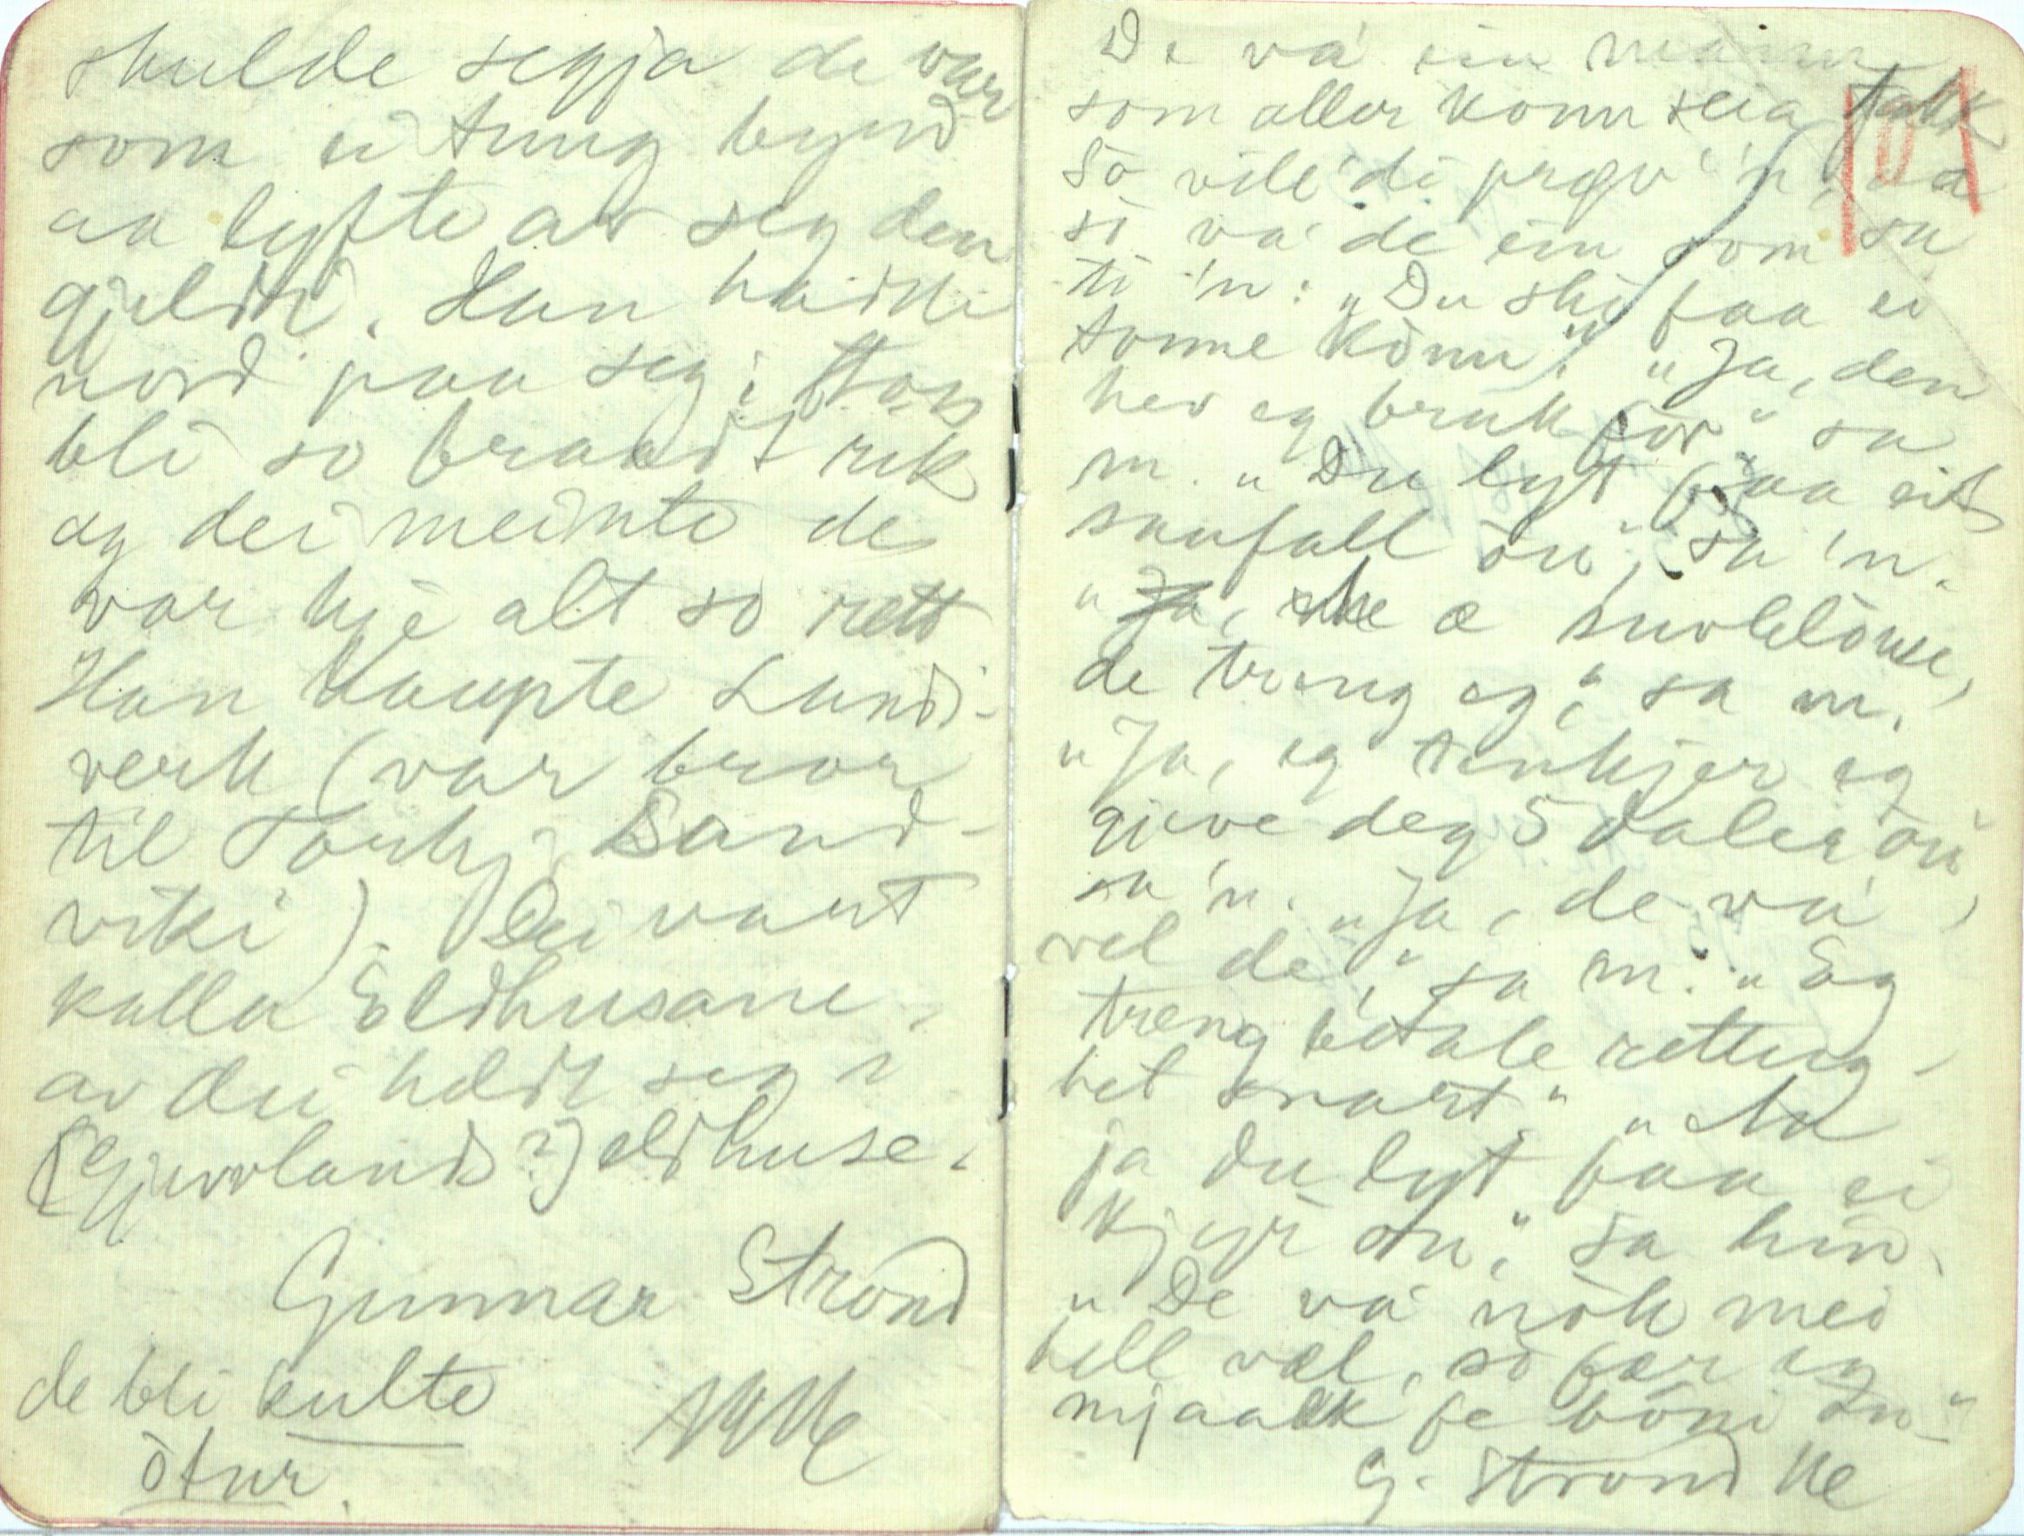 skulde segja de var
som ei tung byrd
aa lyfte av seg den
gjeldi. Han hadde
nord paa seg i
bli so braadt rik
og dei meinte de
var kje alt so rett
Han kaupte Lundi-
verk (var bror
til Torkj Sand-
viki). Dei vart
kalla Eldhusane,
av dei heldt seg i
(Gjuvlands?) eldhuse.
Gunnar Strond
de bli kulte
òtur.
De va' ein mann
som aller konn seia takk
So vill' di prøv' 'n, 
so va' de ein som sa
ti 'n: "Du ska faa ei
tonne konn." "Ja, den
hev eg bruk for" sa
'n. "Du lyt faa eit
saufall òu," sa 'n.
"Ja, me æ suvlelòuse,
de treng eg," sa 'n.
"Ja, eg tenkjer eg
gjeve deg 5 dalar òu
sa 'n. "Ja, de va'
vel de," sa 'n. "Eg
treng betale retting-
het snart." "Aa
ja du lyt faa ei
kjyr òu," sa hin.
"De va' nòk mei
hell væl, so fær eg
mjaalk fe bòni òu"
G. Strond Ve